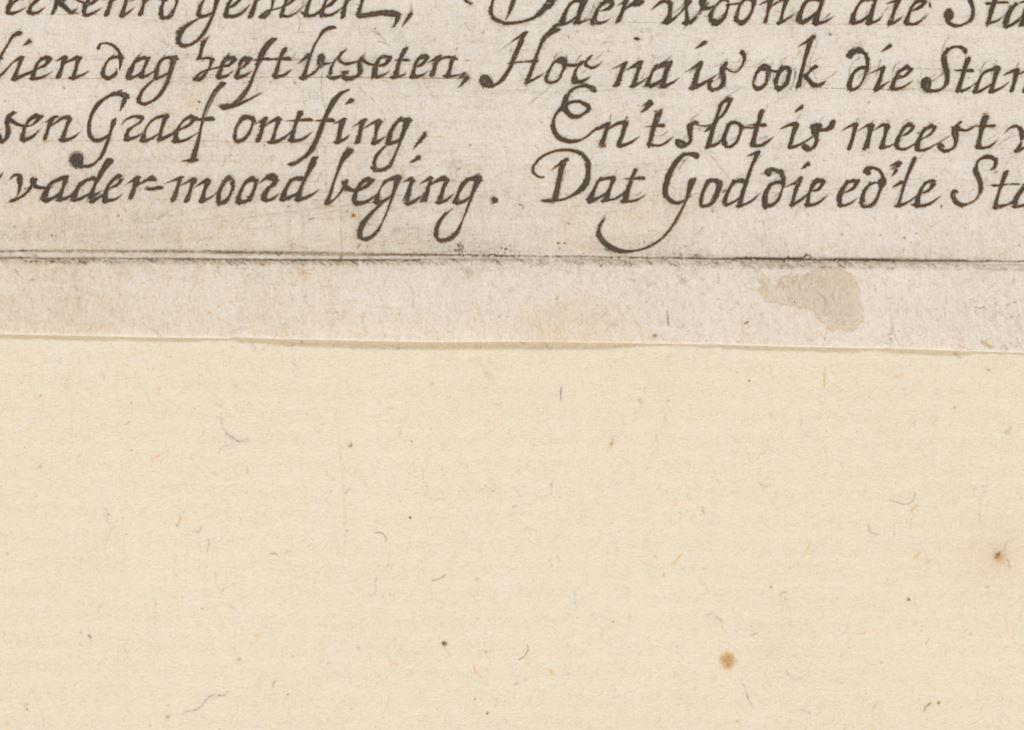 geheten, Daer woond die Sta
lien dag heeft beseten, Hoe na is ook die Stam
sen Graef ontfing, En't slot is meest v
vader-moord beging. Dat God die ed'le Sta